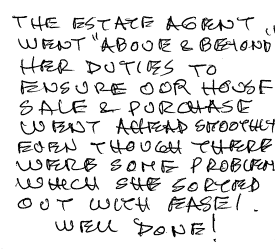 THE ESTATE AGENT
WENT "ABOVE & BEYOND"
HER DUTIES TO
ENSURE OUR HOUSE
SALE & PURCHASE
WENT AHEAD SMOOTHLY
EVEN THOUGH THERE
WERE SOME PROBLEM
WHICH SHE SORTED
OUT WITH EASE!.
WELL DONE!